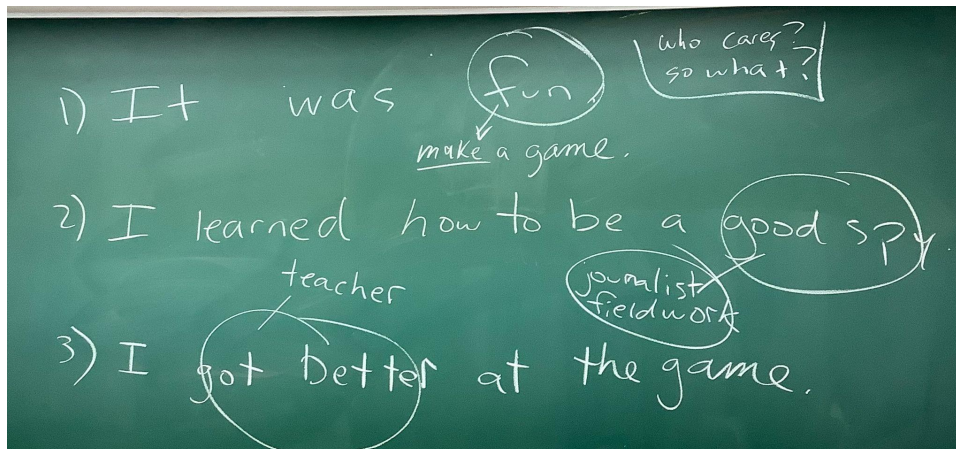 who cares?
so what?
1) It was fun.
make a game.
2) I learned how to be a good spy.
teacher
journalist
fieldwork
3) I got better at the game.